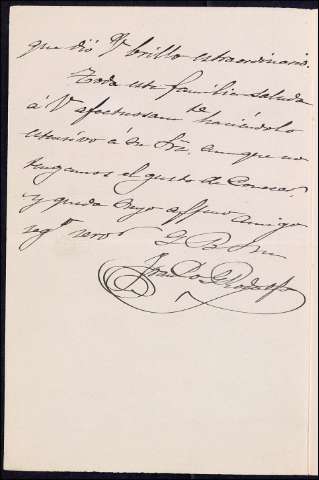 que dió V. brillo extraordinario.
Toda esta familia saluda
á V. afectuosam.te haciéndolo
estensivo á su Sra. aunque no
tengamos el gusto de conocer,
y queda suyo affmo amigo
seg.o serv.r
Q B S M